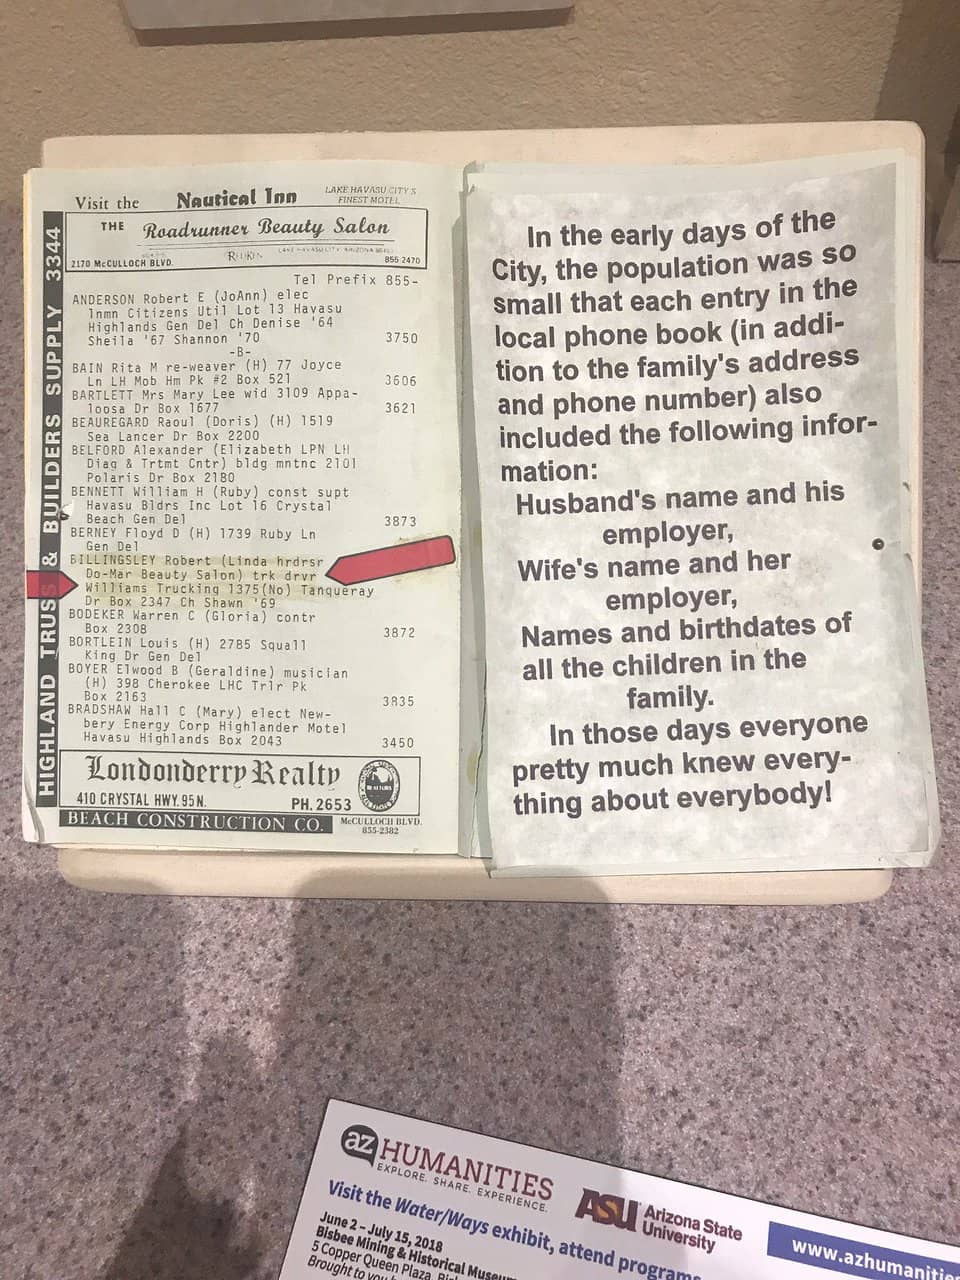 Visit the Nautical Inn LAKE HAVASU CITY'S
FINEST MOTEL
THE Roadrunner Beauty Salon
LAKE HAVASU CITY, ARIZONA
2170 McCULLOCH BLVD. REDKEN 855 2470
HIGHLAND TRUSS & BUILDERS SUPPLY 3344
Tel Prefix 855-
ANDERSON Robert E (JoAnn) elec
lnmn Citizens Util Lot 13 Havasu
Highlands Gen Del Ch Denise '64
Sheila '67 Shannon '70 3750
-B-
BAIN Rita M re-weaver (H) 77 Joyce
Ln LH Mob Hm Pk #2 Box 521 3606
BARTLETT Mrs Mary Lee wid 3109 Appa-
loosa Dr Box 1677 3621
BEAUREGARD Raoul (Doris) (H) 1519
Sea Lancer Dr Box 2200
BELFORD Alexander (Elizabeth LPN LH
Diag & Trtmt Cntr) bldg mntnc 2101
Polaris Dr Box 2180
BENNETT William H (Ruby) const supt
Havasu Bldrs Inc Lot 16 Crystal
Beach Gen Del 3873
BERNEY Floyd D (H) 1739 Ruby Ln
Gen Del
BILLINGSLEY Robert (Linda hrdrsr
Do-Mar Beauty Salon) trk drvr
Williams Trucking 1375(No) Tanqueray
Dr Box 2347 Ch Shawn '69
BODEKER Warren C (Gloria) contr
Box 2308 3872
BORTLEIN Louis (H) 2785 Squall
King Dr Gen Del
BOYER Elwood B (Geraldine) musician
(H) 398 Cherokee LHC Trlr Pk
Box 2163 3835
BRADSHAW Hall C (Mary) elect New-
bery Energy Corp Highlander Motel
Havasu Highlands Box 2043 3450
Londonderry Realty
410 CRYSTAL HWY. 95 N. PH. 2653
REALTORS
BEACH CONSTRUCTION CO. McCULLOCH BLVD.
855-2382
In the early days of the
City, the population was so
small that each entry in the
local phone book (in addi-
tion to the family's address
and phone number) also
included the following infor-
mation:
Husband's name and his
employer,
Wife's name and her
employer,
Names and birthdates of
all the children in the
family.
In those days everyone
pretty much knew every-
thing about everybody!
az HUMANITIES
EXPLORE. SHARE. EXPERIENCE.
ASU Arizona State
University
Visit the Water/Ways exhibit, attend programs
www.azhumanities
June 2 – July 15, 2018
Bisbee Mining & Historical Museum
5 Copper Queen Plaza,
Brought to you